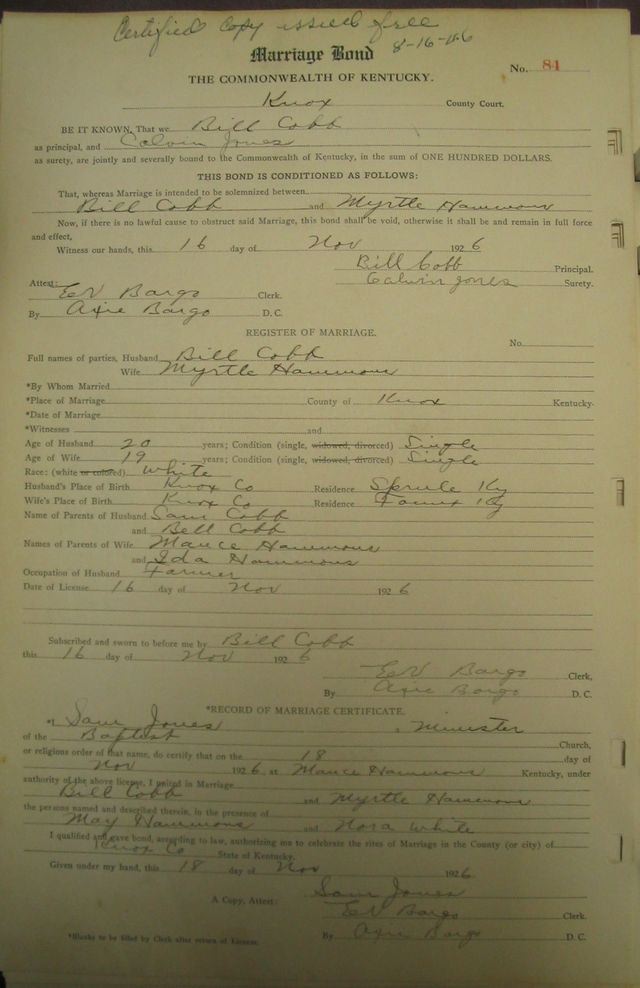 Certified Copy issued free
8-16-46
Marriage Bond
No. 81
THE COMMONWEALTH OF KENTUCKY.
Knox County Court.
BE IT KNOWN, That we Bill Cobb
as principal, and Calvin Jones
as surety, are jointly and severally bound to the Commonwealth of Kentucky, in the sum of ONE HUNDRED DOLLARS.
THIS BOND IS CONDITIONED AS FOLLOWS:
That, whereas Marriage is intended to be solemnized between
Bill Cobb and Myrtle Hammons
Now, if there is no lawful cause to obstruct said Marriage, this bond shall be void, otherwise it shall be and remain in full force
and effect,
Witness our hands, this 16 day of Nov 1926
Bill Cobb Principal.
Calvin Jones Surety.
Attest: EV Bargo Clerk.
By Axie Bargo D. C.
REGISTER OF MARRIAGE.
No.
Full names of parties, Husband Bill Cobb
Wife Myrtle Hammons
*By Whom Married
*Place of Marriage County of Knox Kentucky.
*Date of Marriage
*Witnesses and
Age of Husband 20 years; Condition (single, widowed, divorced) Single
Age of Wife 19 years; Condition (single, widowed, divorced) Single
Race: (white or colored) White
Husband's Place of Birth Knox Co Residence Sprule Ky
Wife's Place of Birth Knox Co Residence Ky
Name of Parents of Husband Sam Cobb
and Bell Cobb
Names of Parents of Wife Mance Hammons
and Ida Hammons
Occupation of Husband Farmer
Date of License 16 day of Nov 1926
Subscribed and sworn to before me by Bill Cobb
this 16 day of Nov 1926
EV Bargo Clerk,
By Axie Bargo D. C.
*RECORD OF MARRIAGE CERTIFICATE.
*I, Sam Jones, Minister
of the Baptist Church,
or religious order of that name, do certify that on the 18 day of
Nov 1926 at Mance Hammons Kentucky, under
authority of the above license, I united in Marriage
Bill Cobb and Myrtle Hammons
the persons named and described therein, in the presence of
May Hammons and Nora White
I qualified and gave bond, according to law, authorizing me to celebrate the rites of Marriage in the County (or city) of
Knox Co State of Kentucky.
Given under my hand, this 18 day of Nov 1926
Sam Jones
A Copy, Attest: EV Bargo Clerk.
*Blanks to be filled by Clerk after return of License. By Axie Bargo D. C.